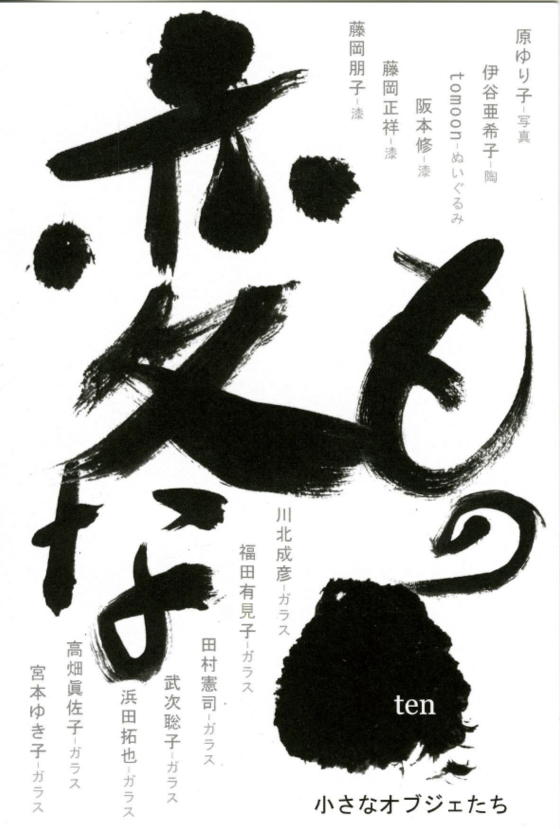 変な
もの
ten
小さなオブジェたち
原ゆり子-写真
伊谷亜希子-陶
tomoon-ぬいぐるみ
阪本修-漆
藤岡正祥-漆
藤岡朋子-漆
川北成彦-ガラス
福田有見子-ガラス
田村憲司-ガラス
武次聡子-ガラス
浜田拓也-ガラス
高畑眞佐子-ガラス
宮本ゆき子-ガラス